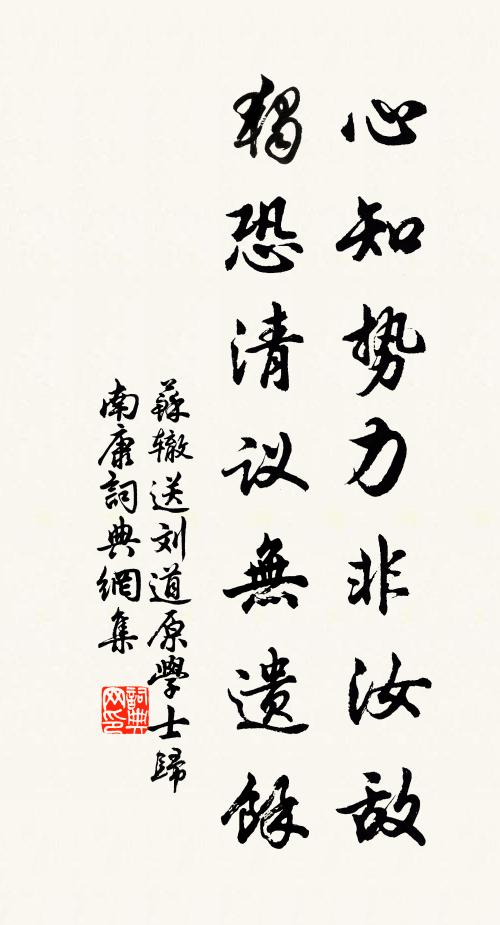 心知势力非汝敌
獨恐清议無遗餘
蘇辙送刘道原學士歸
南康詞典網集
詞典网印